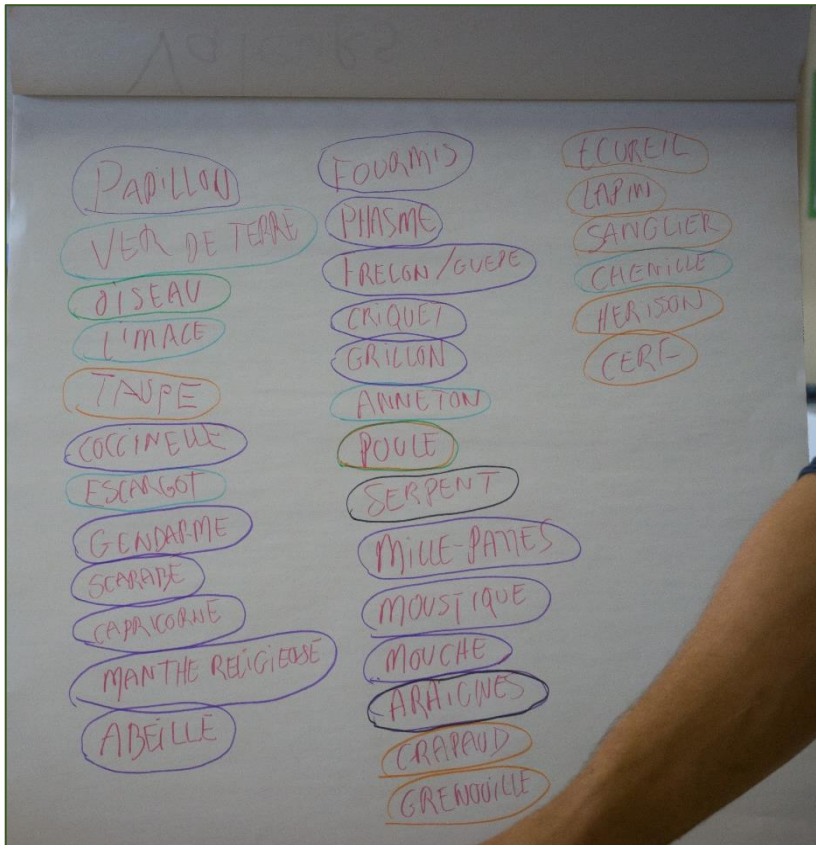 Valeurs
PAPILLON
VER DE TERRE
OISEAU
LIMACE
TAUPE
COCCINELLE
ESCARGOT
GENDARME
SCARABE
CAPRICORNE
MANTHE RELIGIEUSE
ABEILLE
FOURMIS
PHASME
FRELON/GUEPE
CRIQUET
GRILLON
ANNETON
POULE
SERPENT
MILLE-PATTES
MOUSTIQUE
MOUCHE
ARAIGNES
CRAPAUD
GRENOUILLE
ECUREIL
LAPIN
SANGLIER
CHENILLE
HERISON
CERF